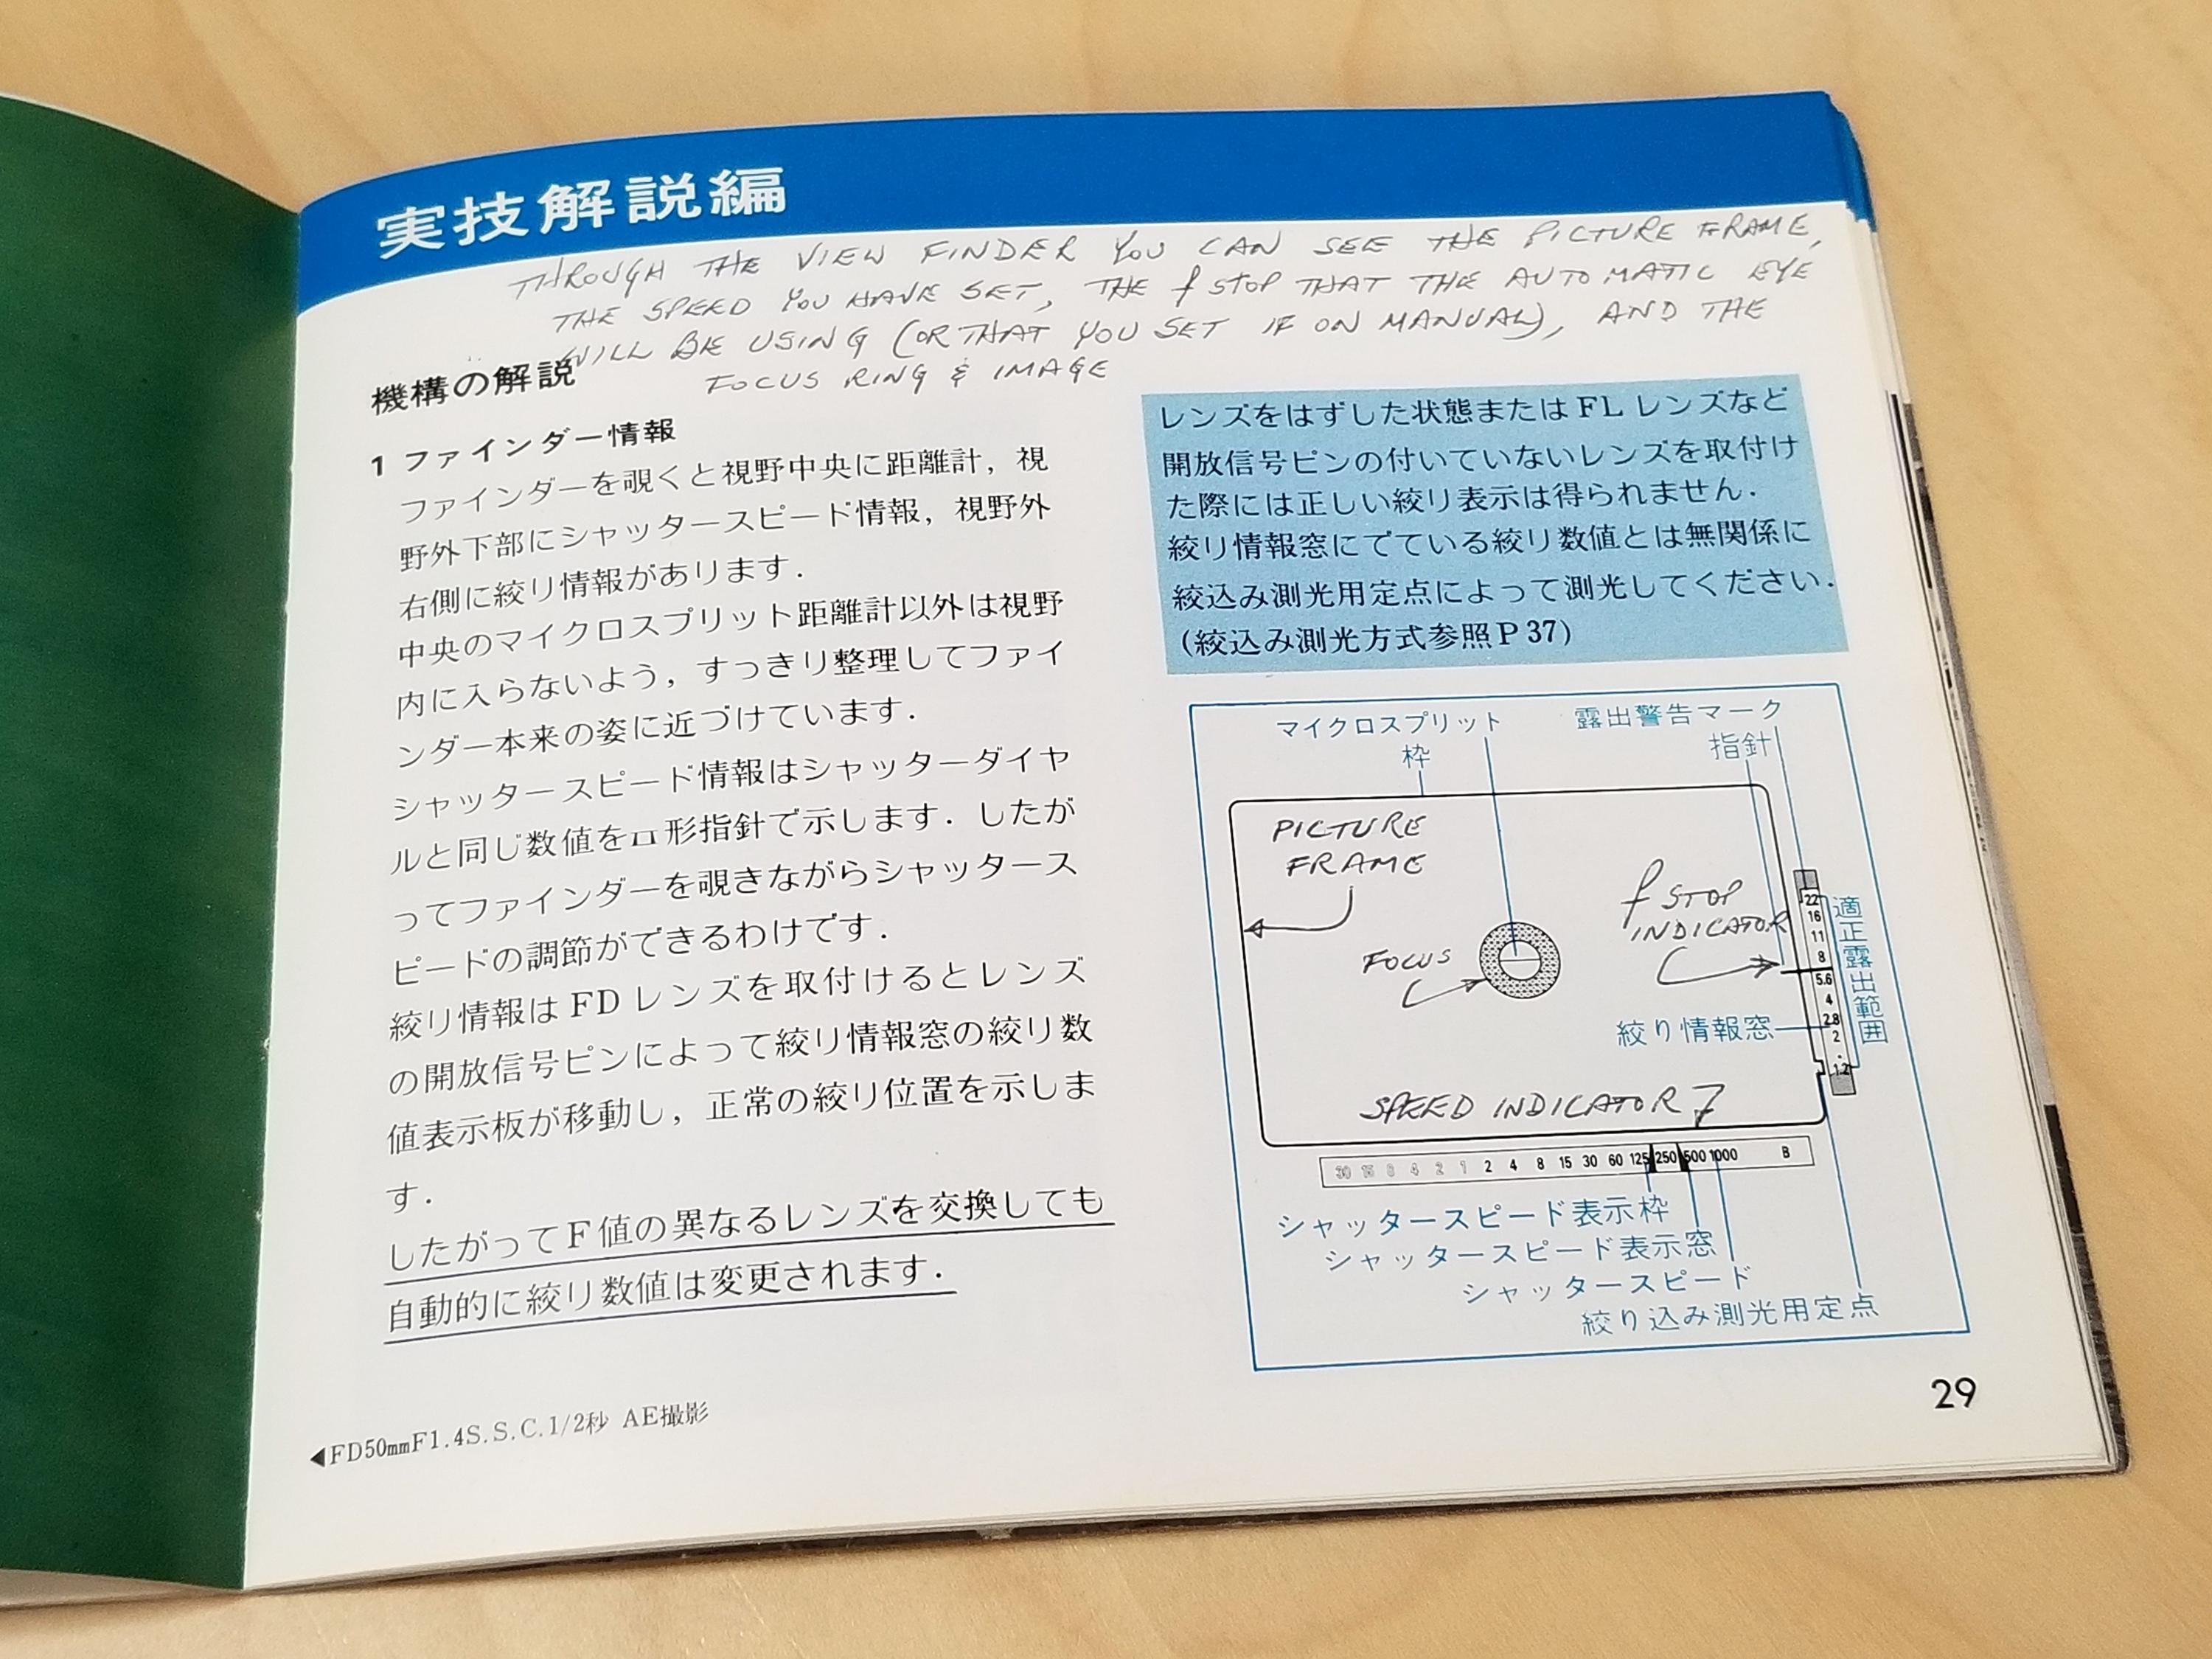 実技解説編
THROUGH THE VIEW FINDER YOU CAN SEE THE PICTURE FRAME,
THE SPEED YOU HAVE SET, THE f STOP THAT THE AUTOMATIC EYE
WILL BE USING (OR THAT YOU SET IF ON MANUAL), AND THE
FOCUS RING & IMAGE
機構の解説
1 ファインダー情報
ファインダーを覗くと視野中央に距離計，視
野外下部にシャッタースピード情報，視野外
右側に絞り情報があります．
中央のマイクロスプリット距離計以外は視野
内に入らないよう，すっきり整理してファイ
ンダー本来の姿に近づけています．
シャッタースピード情報はシャッターダイヤ
ルと同じ数値を形指針で示します．したが
ってファインダーを覗きながらシャッタース
ピードの調節ができるわけです．
絞り情報はFDレンズを取付けるとレンズ
の開放信号ピンによって絞り情報窓の絞り数
値表示板が移動し，正常の絞り位置を示しま
す．
したがってF値の異なるレンズを交換しても
自動的に絞り数値は変更されます．
◀FD50mmF1.4S.S.C.1/2秒 AE撮影
レンズをはずした状態またはFLレンズなど
開放信号ピンの付いていないレンズを取付け
た際には正しい絞り表示は得られません．
絞り情報窓にでている絞り数値とは無関係に
絞込み測光用定点によって測光してください．
(絞込み測光方式参照P37)
マイクロスプリット
露出警告マーク
枠
指針
PICTURE
FRAME
FOCUS
f STOP
INDICATOR
22
16
11
8
5.6
4
2.8
2
1.2
適正露出範囲
絞り情報窓
SPEED INDICATOR
30 15 8 4 2 1 2 4 8 15 30 60 125 250 500 1000 B
シャッタースピード表示枠
シャッタースピード表示窓
シャッタースピード
絞り込み測光用定点
29